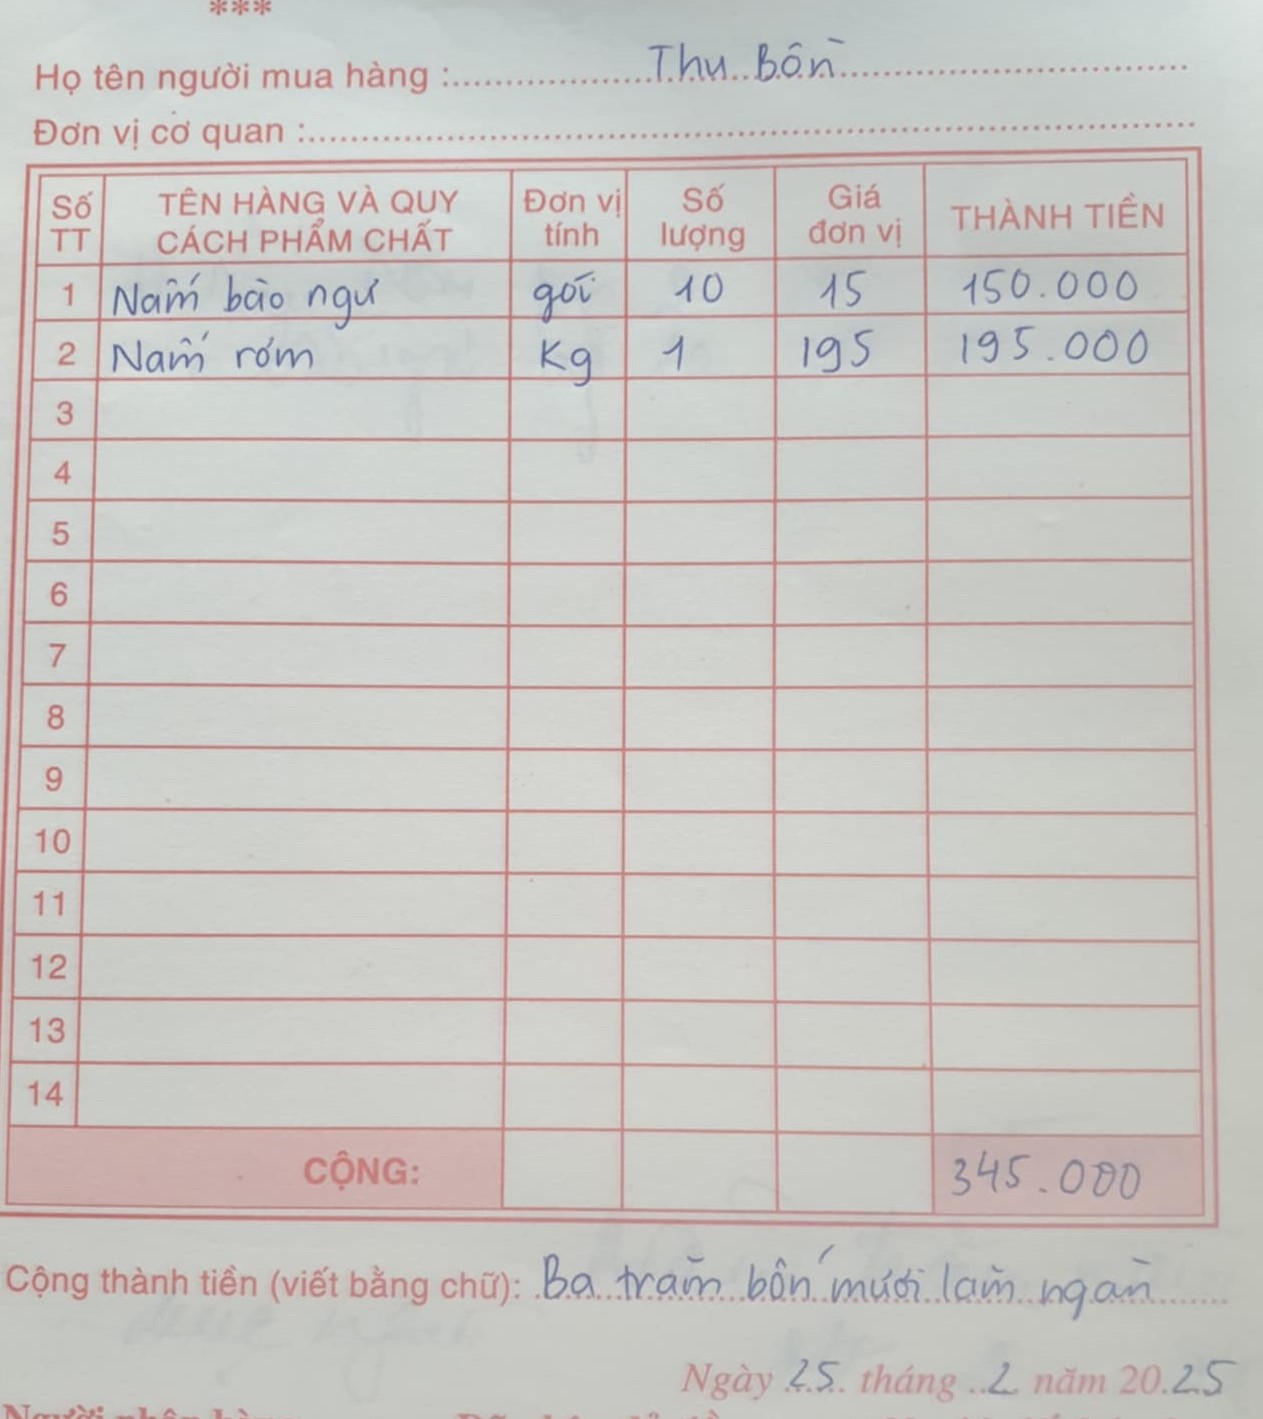 ***
Họ tên người mua hàng : Thu Bồn
Đơn vị cơ quan :
Số TT TÊN HÀNG VÀ QUY CÁCH PHẨM CHẤT Đơn vị tính Số lượng Giá đơn vị THÀNH TIỀN
1 Nấm bào ngư gói 10 15 150.000
2 Nấm rơm Kg 1 195 195.000
3
4
5
6
7
8
9
10
11
12
13
14
CỘNG: 345.000
Cộng thành tiền (viết bằng chữ): Ba trăm bốn mươi lăm ngàn
Ngày 25 tháng 2 năm 2025